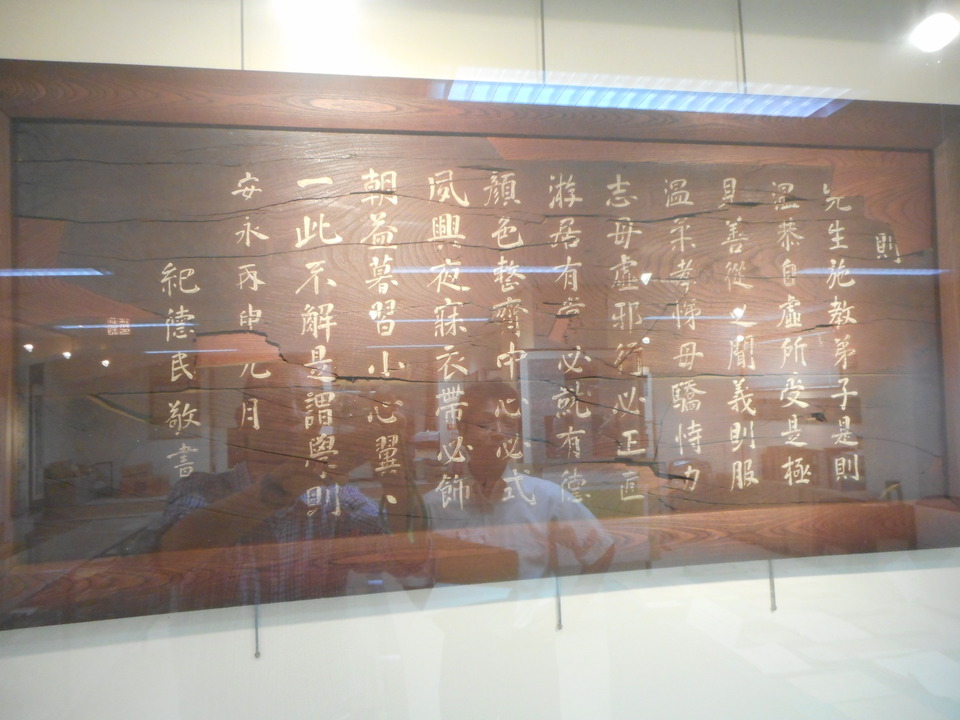 則
先生施教弟子是則
温恭自虛所受是極
見善從之聞義則服
温柔孝悌毋驕恃力
志毋虛邪行必正直
游居有常必就有德
顔色整齊中心必式
夙興夜寐衣帶必飾
朝益暮習小心翼〻
一此不解是謂學則
安永丙申元月
紀德民敬書